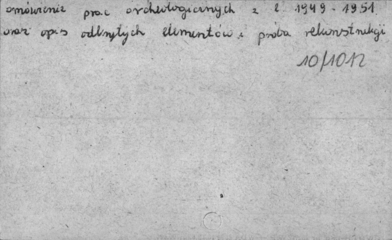 omówienie prac archeologicznych z l 1949 - 1951
oraz opis odkrytych elementów i próba rekonstrukcji
10/1012